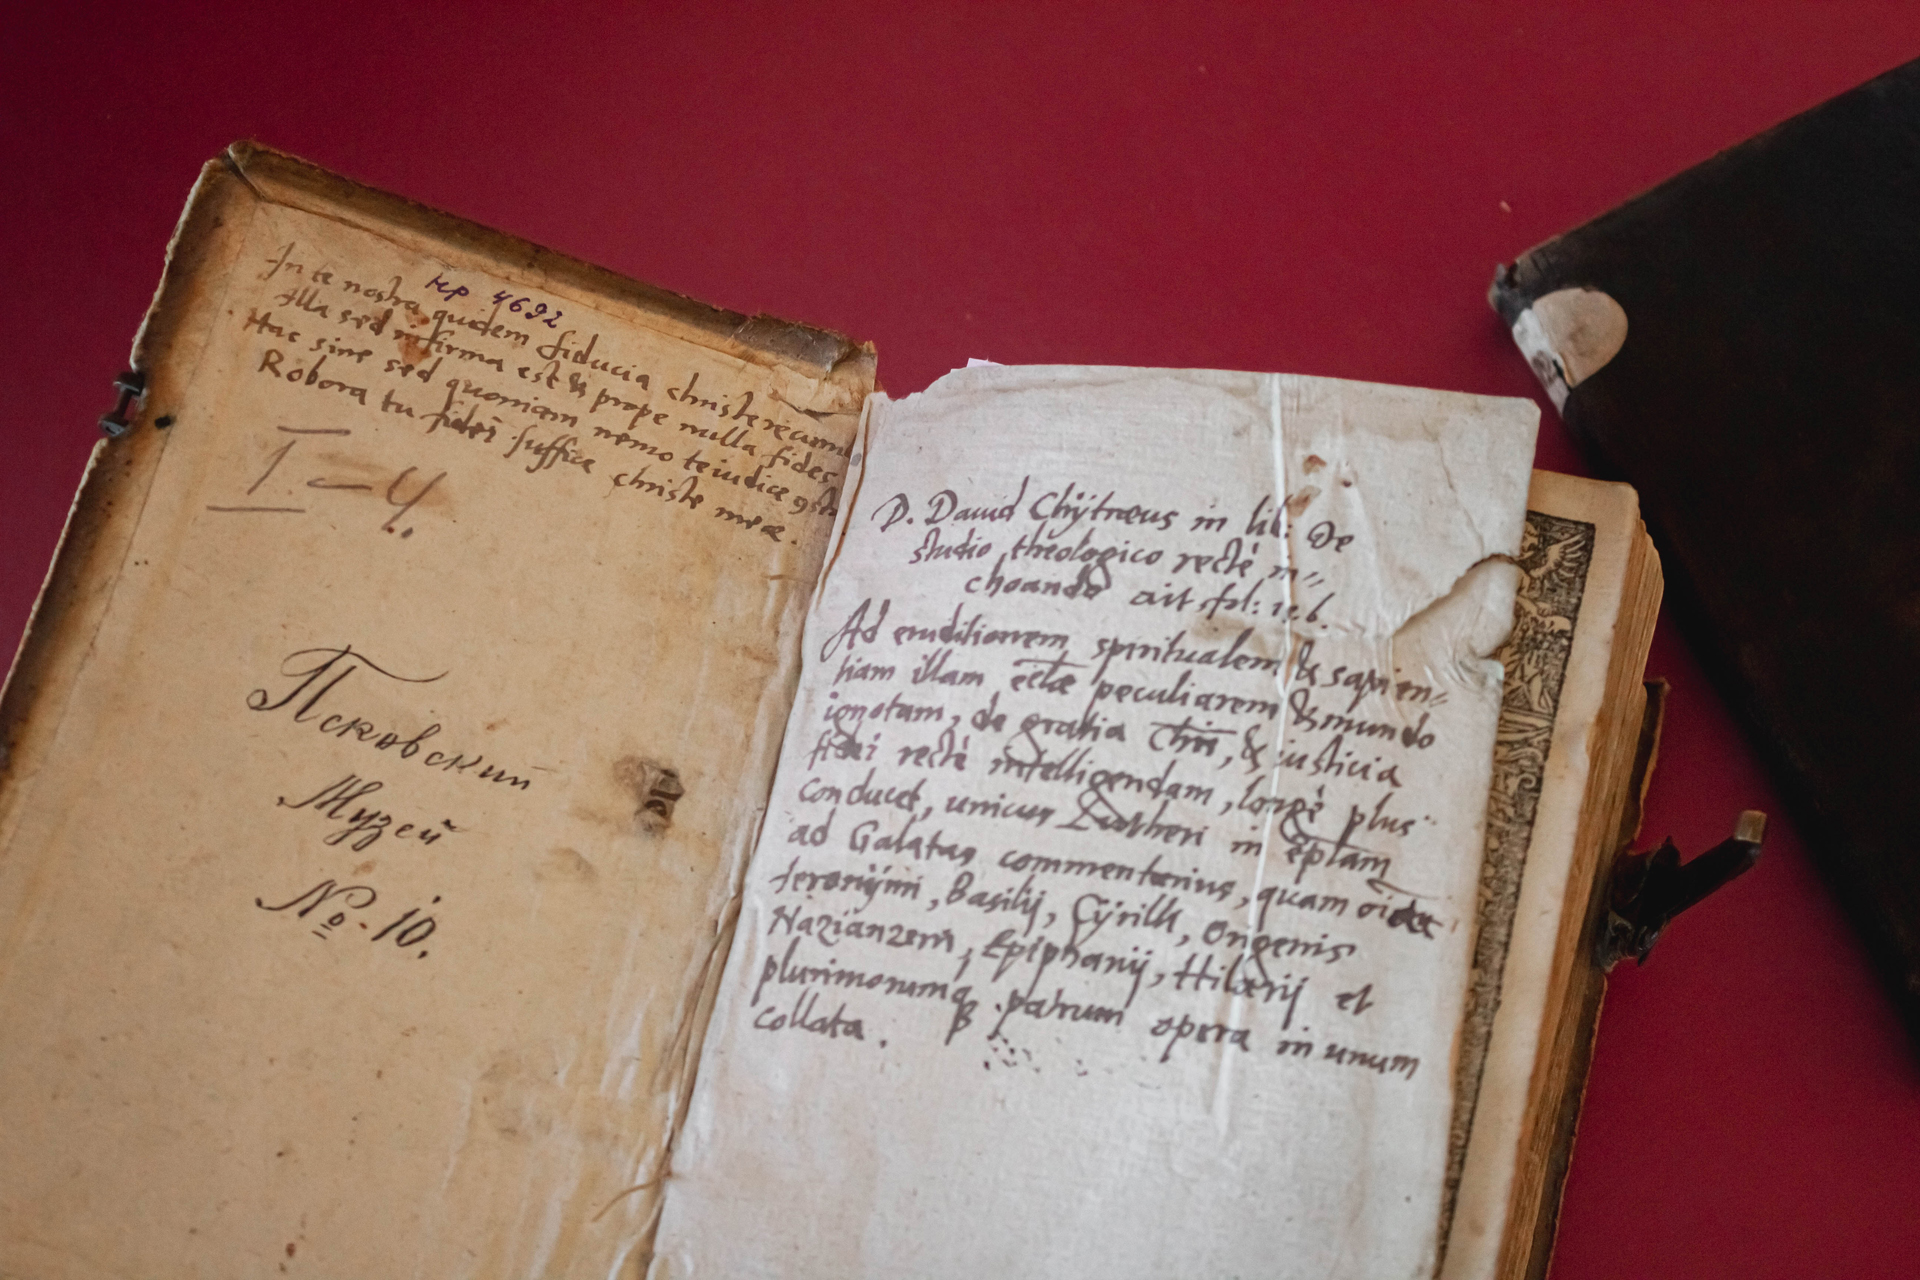 In te nostra quidem fiducia christe recum
кр 4692
Illa sed infirma est & prope nulla fides
Hac sine sed quoniam nemo te iudice
Robora tu fidei suffice christe meæ.
I – 4
Псковский
Музей
№. 10.
D. Dauid Chÿtræus in lib: De
studio theologico rectè in〃
choando ait fol:
Ad eruditionem spiritualem & sapien〃
tiam illam eccłæ peculiarem & mundo
ignotam, de gratia Chri, & iusticia
fidei rectè intelligendam, longè plus
conducet, unicus Lutheri in eplam
ad Galatas commentarius, quam
Ieronÿmi, Basilij, Cÿrilli, Origenis
Nazianzeni, Epiphanij, Hilarij et
plurimorumq patrum opera in unum
collata.